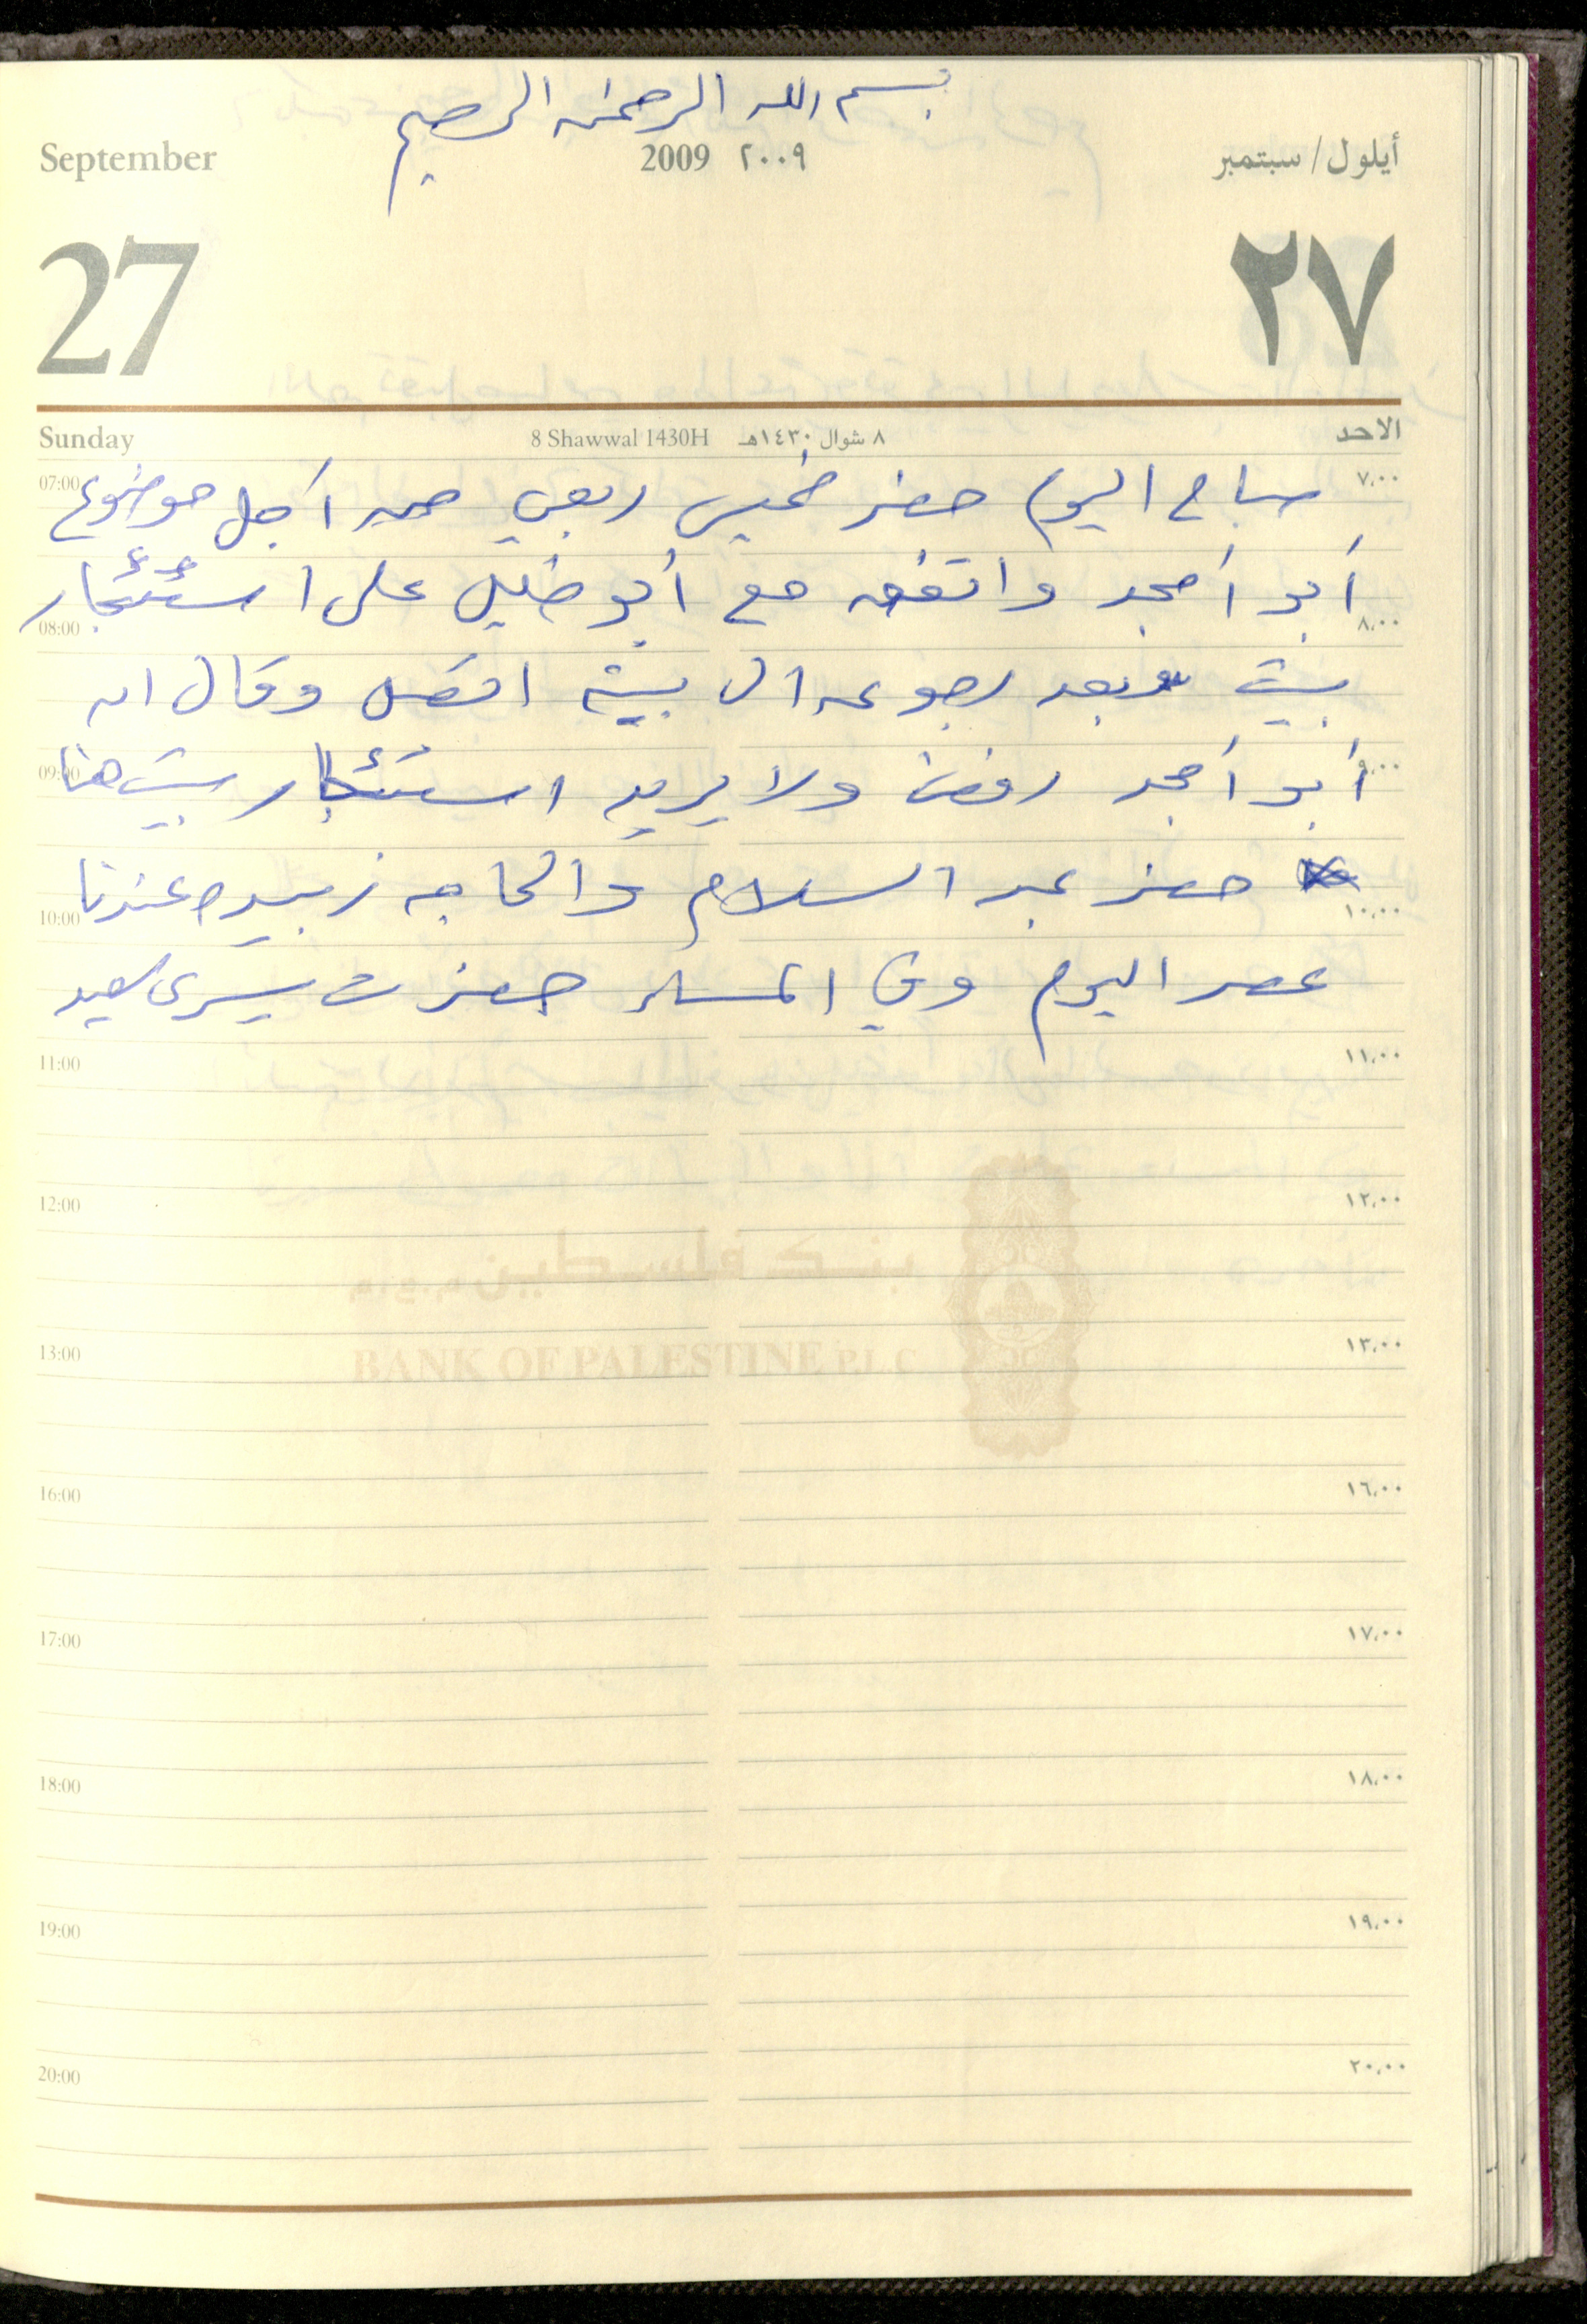 بسم الله الرحمن الرحيم
September 2009 ٢٠٠٩ أيلول/سبتمبر
27 ٢٧
Sunday 8 Shawwal 1430H ٨ شوال ١٤٣٠هـ الاحد
07:00 صباح اليوم حضر خميس ربعي من أجل موضوع ٧،٠٠
أبو أمجد واتفق مع أبو خليل على استئجار
08:00 ٨،٠٠
بيت وبعد رجوعه الى بيته اتصل وقال ان
09:00 أبو أمجد رفض ولا يريد استئجار بيت هنا ٩،٠٠
حضر عبد السلام والحاجه زبيده عندنا
10:00 ١٠،٠٠
عصر اليوم وفي المساء حضرت يسرى سعيد
11:00 ١١،٠٠
12:00 ١٢،٠٠
بنك فلسطين
13:00 ١٣،٠٠
BANK OF PALESTINE P.L.C
16:00 ١٦،٠٠
17:00 ١٧،٠٠
18:00 ١٨،٠٠
19:00 ١٩،٠٠
20:00 ٢٠،٠٠